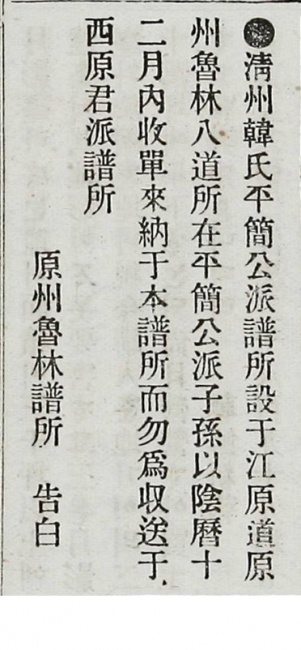 ●淸州韓氏平簡公派譜所設于江原道原
州魯林八道所在平簡公派子孫以陰曆十
二月內收單來納于本譜所而勿爲収送于
西原君派譜所
原州魯林譜所 告白